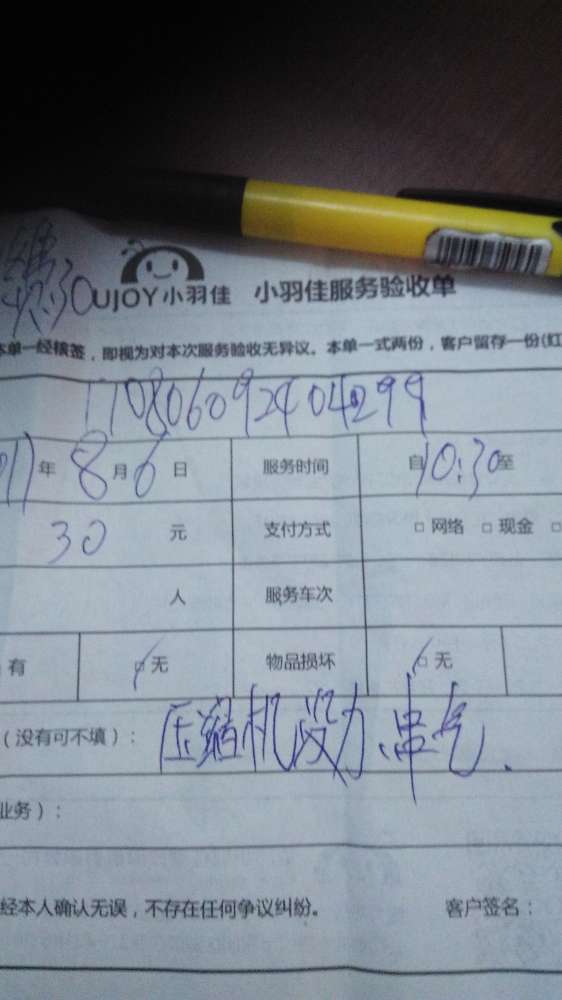 UJOY小羽佳 小羽佳服务验收单
本单一经核签，即视为对本次服务验收无异议。本单一式两份，客户留存一份(红
170806092404299
年8月6日 服务时间 自10:30至
30元 支付方式 □ 网络 □ 现金 □
人 服务车次
有 □无 物品损坏 □无
（没有可不填）： 压缩机没力、串气.
业务）：
经本人确认无误，不存在任何争议纠纷。 客户签名：